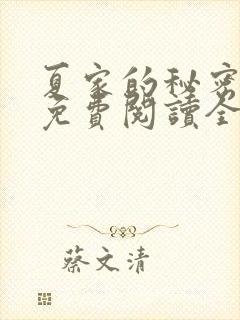 夏家的秘密
免費閱讀全
蔡文清